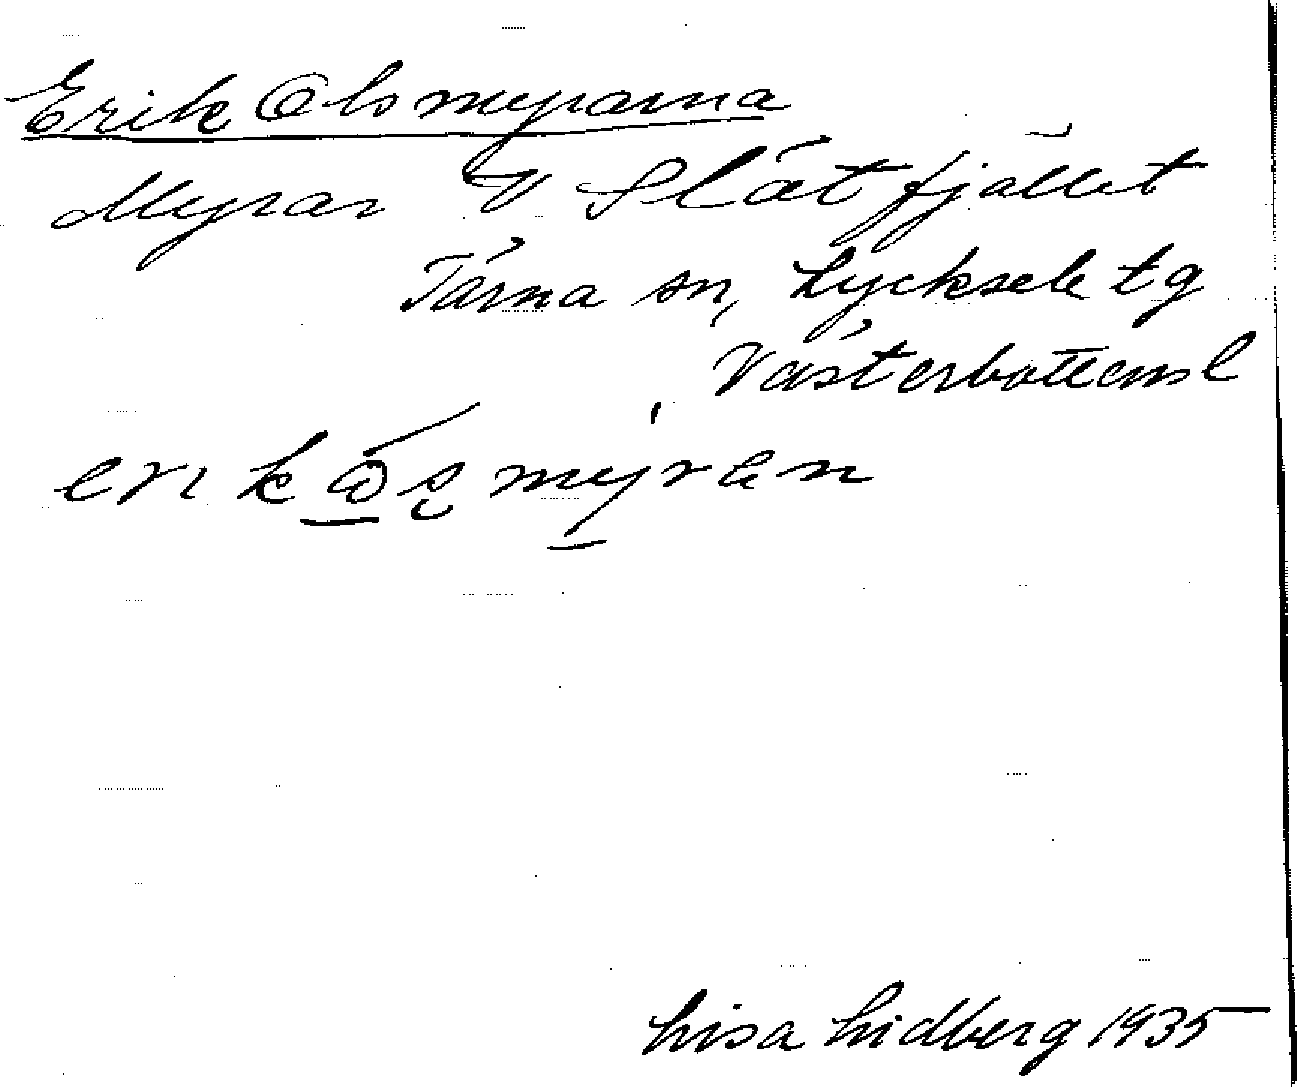 Erik Olsmyrarna
Myrar V Slåtfjället
Tärna sn, Lycksele tg
Västerbottensl
erik ås myran
Lisa Lidberg 1935